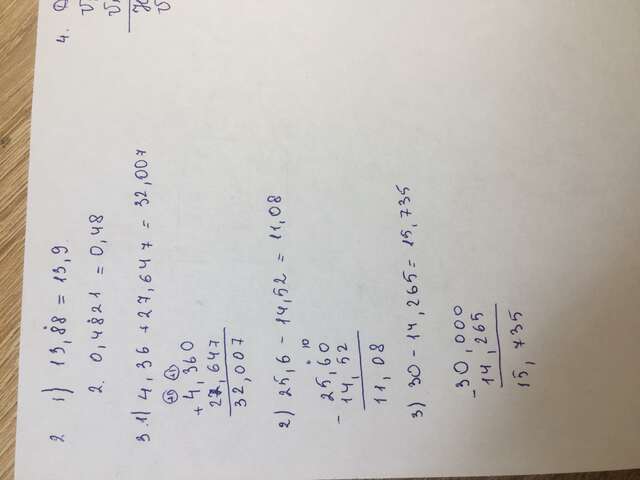 2 1) 13,88 = 13,9
2. 0,4821 = 0,48
3 1) 4,36 + 27,647 = 32,007
+ 4,360
27,647
32,007
2) 25,6 - 14,52 = 11,08
10
- 25,60
14,52
11,08
3) 30 - 14,265 = 15,735
- 30,000
14,265
15,735
4.